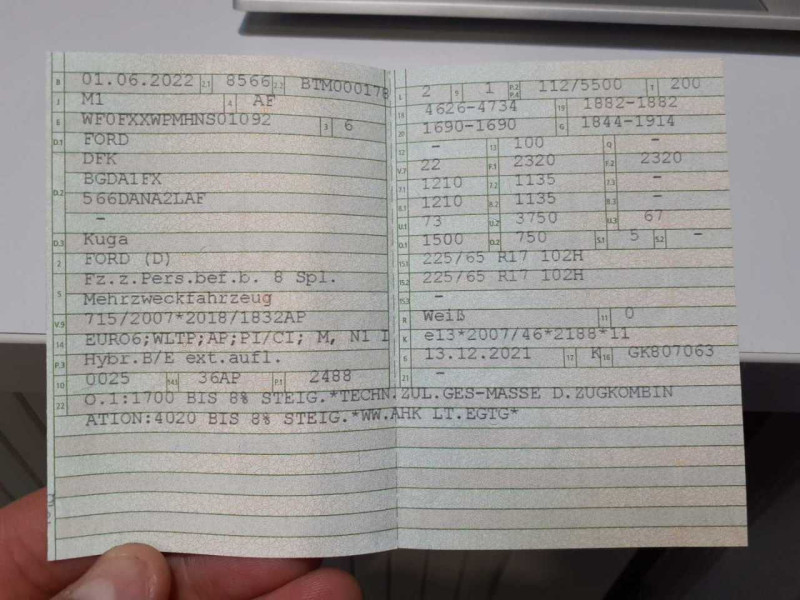 B 01.06.2022 2.1 8566 2.2 BTM000178
J M1 4 AF
E WF0FXXWPMHNS01092 3 6
D.1 FORD
DFK
D.2 BGDA1FX
566DANA2LAF
-
D.3 Kuga
2 FORD (D)
Fz.z.Pers.bef.b. 8 Spl.
5 Mehrzweckfahrzeug
V.9 715/2007*2018/1832AP
14 EURO6;WLTP;AP;PI/CI; M, N1 I
P.3 Hybr.B/E ext.aufl.
10 0025 14.1 36AP P.1 2488
22 O.1:1700 BIS 8% STEIG.*TECHN.ZUL.GES-MASSE D.ZUGKOMBIN
ATION:4020 BIS 8% STEIG.*WW.AHK LT.EGTG*
L 2 9 1 P.2 P.4 112/5500 T 200
18 4626-4734 19 1882-1882
20 1690-1690 G 1844-1914
12 - 13 100 Q -
V.7 22 F.1 2320 F.2 2320
7.1 1210 7.2 1135 7.3 -
8.1 1210 8.2 1135 8.3 -
U.1 73 U.2 3750 U.3 67
O.1 1500 O.2 750 S.1 5 S.2 -
15.1 225/65 R17 102H
15.2 225/65 R17 102H
15.3 -
R Weiß 11 0
K e13*2007/46*2188*11
6 13.12.2021 17 K 16 GK807063
21 -